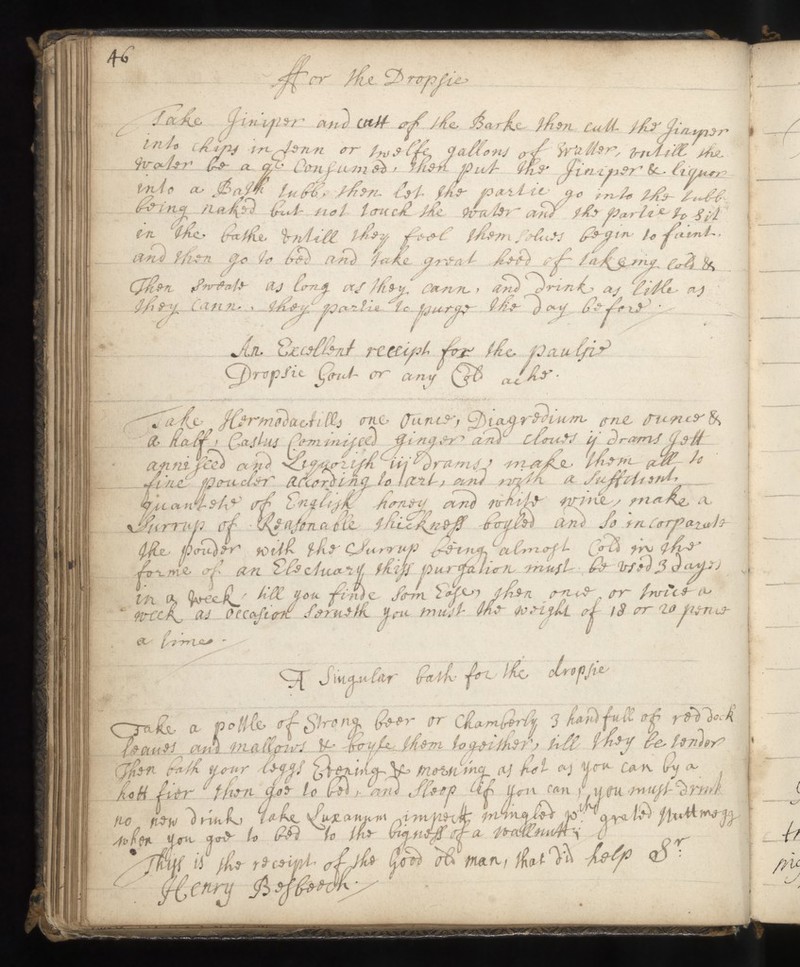 46
ffor the Dropsie
Take Jiniper and cutt of the Barke then cutt the Jiniper
into chips in tenn or twelfe gallons of Watter, vntill the
Water be a qt Consumed, then put the Jiniper & liquor
into a Bath tubb, then let the partie go into the tubb
being naked but not touch the water and the partie to sit
in the bathe vntill they feel them selues begin to faint.
and then go to bed and take great heed of takeing cold &
Then sweate as long as they cann, and drink as litle as
they cann. they partie to purge the day before.
An Excellent receipt for the paulsie
Dropsie Gout or any Cold ache.
Take Hermodactills one ounce, Diagredium one ounce &
a half, Castus Cominseed ginger and cloues ij drams Jett
anniseed and Liquorish iij drams, make them all to
fine pouder according to art, and with a sufficient
quantete of English honey and white wine, make a
Surrup of Reasonable thickness boyled and so incorparate
the pouder with the Surrup being almost Cold in the
forme of an Electuary this purgation must be vsed 3 dayes
in a week, till you finde som Ease, then once or twice a
week as occasion serueth you must the weight of 18 or 20 pence
a time.
A Singular bath for the dropsie
Take a pottle of Strong beer or Chamberly 3 handfull of red dock
leaues and mallows & boyle them togeither, till they be tender
Then bath your leggs Evening & morning as hot as you can by a
hott fier then goe to bed, and sleep if you can, you must drink
no new drink take Luxanum mingled wth grated Nuttmegg
when you goe to bed to the bigness of a wallnutt;
This is the receipt of the Good old man, that did help Sr
Henry Besbeech.